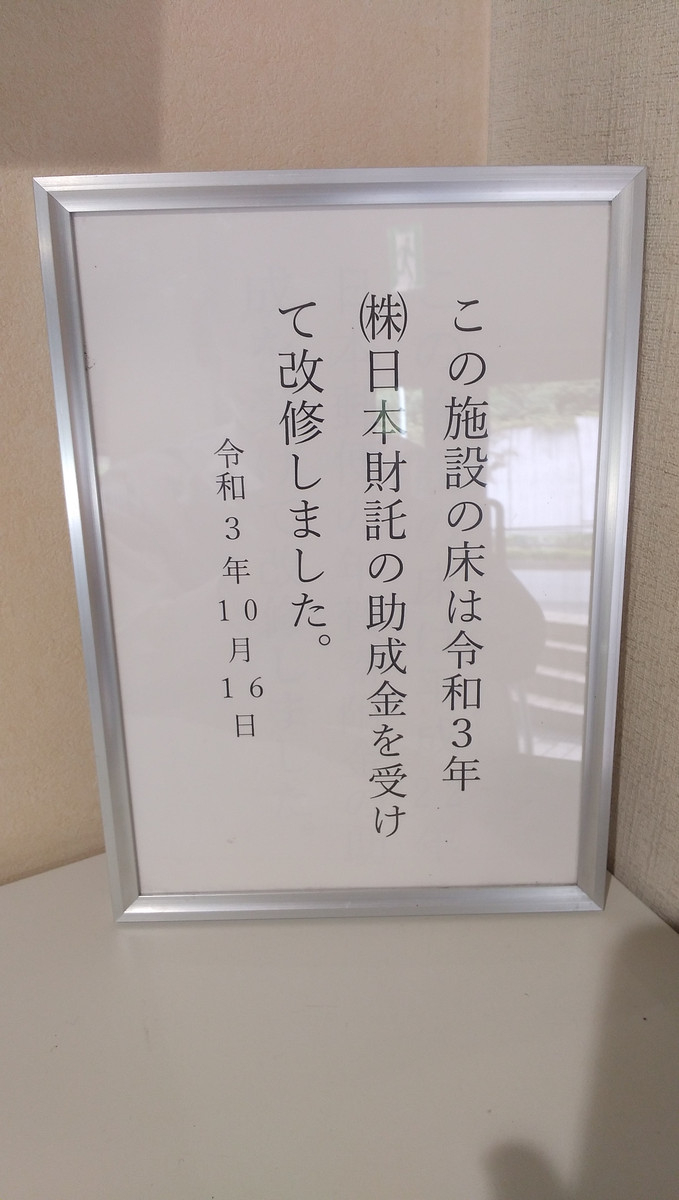 この施設の床は令和３年
㈱日本財託の助成金を受け
て改修しました。
令和３年１０月１６日